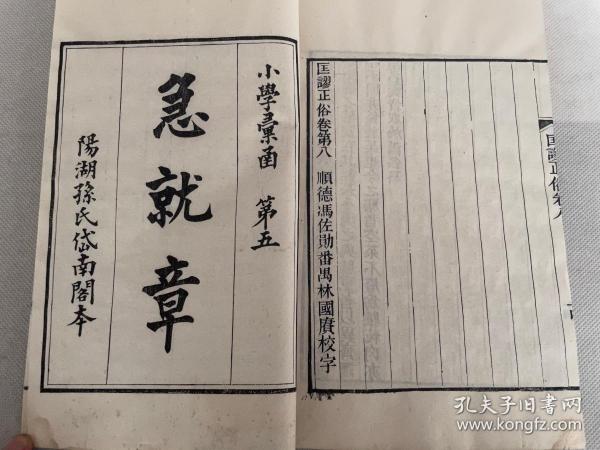 匡謬正俗卷八
匡謬正俗卷第八 順德馮佐勛番禺林國賡校字
小學彙函 第五
急就章
陽湖孫氏岱南閣本
孔夫子旧书网
www.kongfz.com